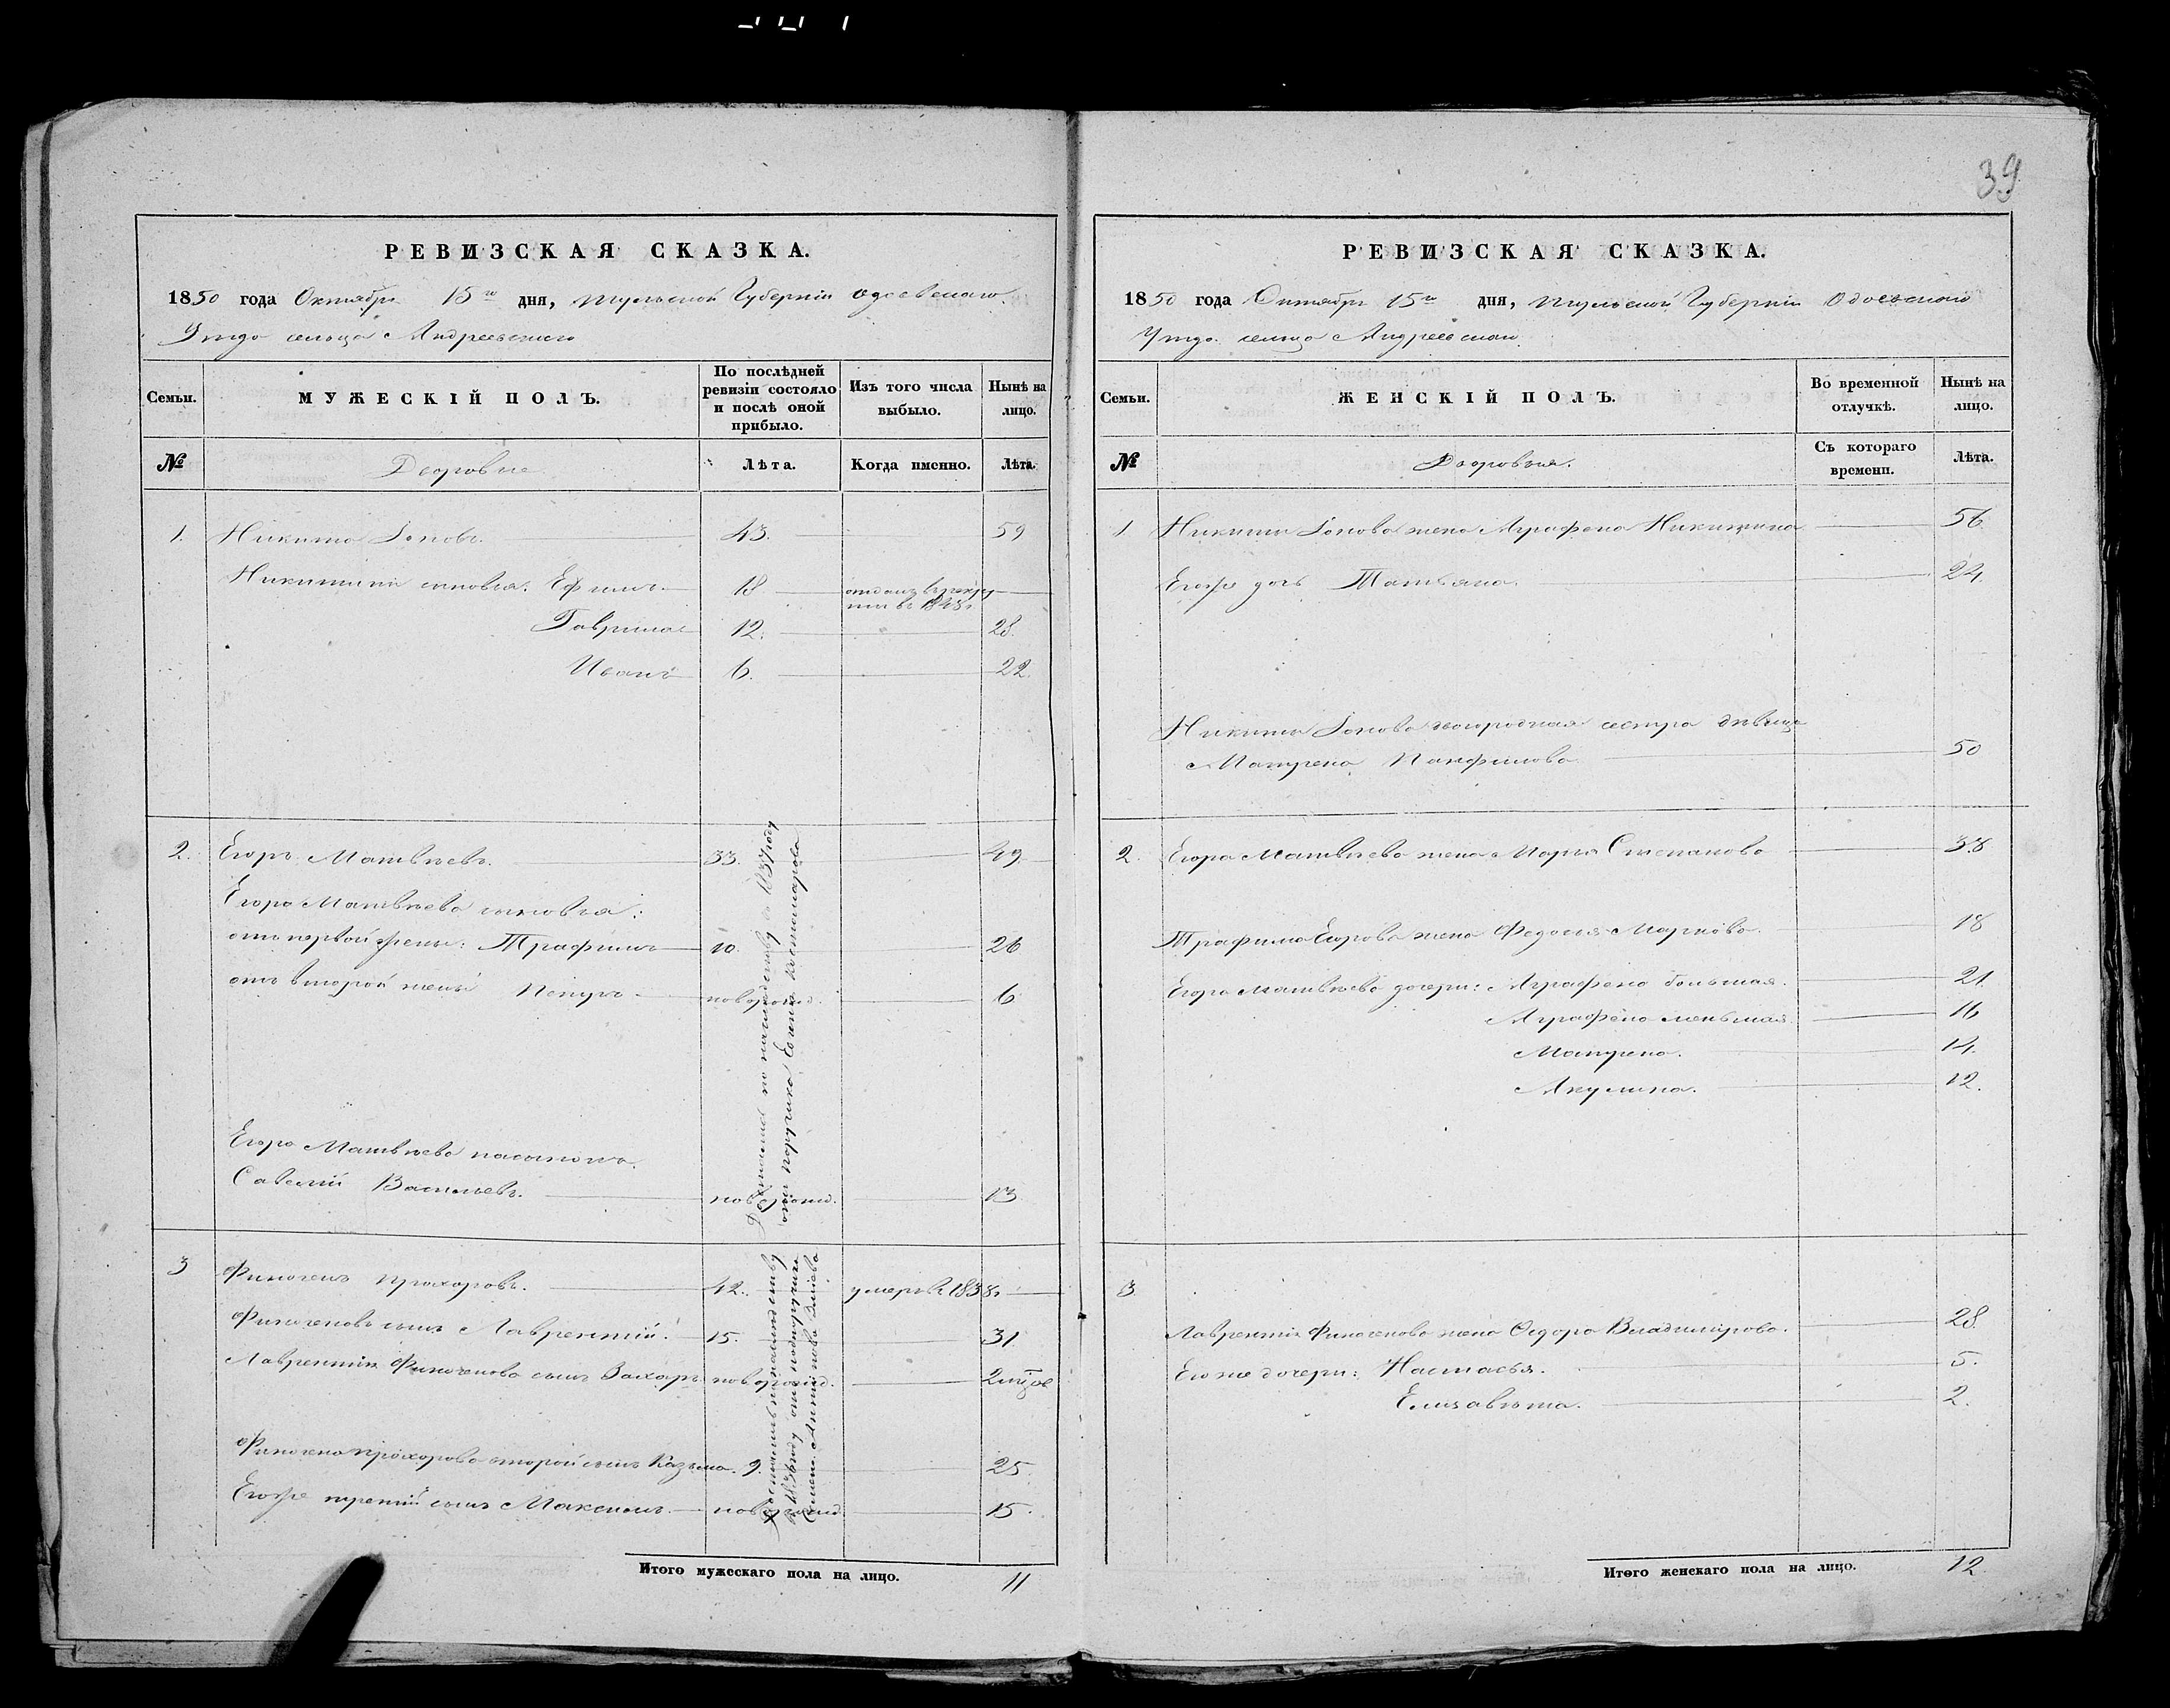 39
РЕВИЗСКАЯ СКАЗКА.
1850 года Октября 15го дня, Тульской Губерніи Одоевскаго
Уѣзда сельца Андреевскаго
Семьи.
МУЖЕСКІЙ ПОЛЪ.
По послѣдней ревизіи состояло и послѣ оной прибыло.
Изъ того числа выбыло.
Нынѣ на лицо.
№
Дворовые
Лѣта.
Когда именно.
Лѣта.
1. Никита Іоновъ. 43. 59
Никитины сыновья: Ефимъ 18 отданъ въ рекру
ты въ
Гаврила 12. 28.
Иванъ 6. 22.
2. Егоръ Матвѣевъ. 33. 49
Егора Матвѣева сыновья:
отъ первой жены: Трафимъ 10. 26
отъ второй жены Петръ новорожд. 6
Егора Матвѣева пасынокъ
Савелій Васильевъ. новорожд. 13
Достались по наслѣдству въ 1837 году
отъ порутчика Костомарова
3 Финогенъ Прохоровъ. 42. умеръ в 1838г
Финогеновъ сынъ Лаврентій. 15. 31
Лаврентія Финогенова сынъ Захаръ новорожд. 2
Финогена Прохорова второй сынъ Казьма. 9. 25.
Егоже третій сынъ Максимъ. новорожд. 15.
Достались по наслѣдству
году отъ подпоручика
Итого мужескаго пола на лицо. 11
РЕВИЗСКАЯ СКАЗКА.
1850 года Октября 15го дня, Тульской Губерніи Одоевскаго
Уѣзда сельца Андреевскаго
Семьи.
ЖЕНСКІЙ ПОЛЪ.
Во временной отлучкѣ.
Нынѣ на лицо.
№
Дворовыя.
Съ котораго времени.
Лѣта.
1 Никиты Іонова жена Аграфена Никитина 56
Егоже дочь Татьяна. 24
Никиты Іонова двоюродная сестра дѣвица
Матрена Панфилова 50
2. Егора Матвѣева жена Марья Степанова 38
Трафима Егорова жена Федосья Маркова. 18
Егора Матвѣева дочери: Аграфена большая. 21
Аграфена меньшая. 16
Матрена. 14.
Акулина. 12.
3.
Лаврентія Финогенова жена Федора Владимірова. 28.
Егоже дочери: Настасья. 5.
Елизавета. 2.
Итого женскаго пола на лицо. 12